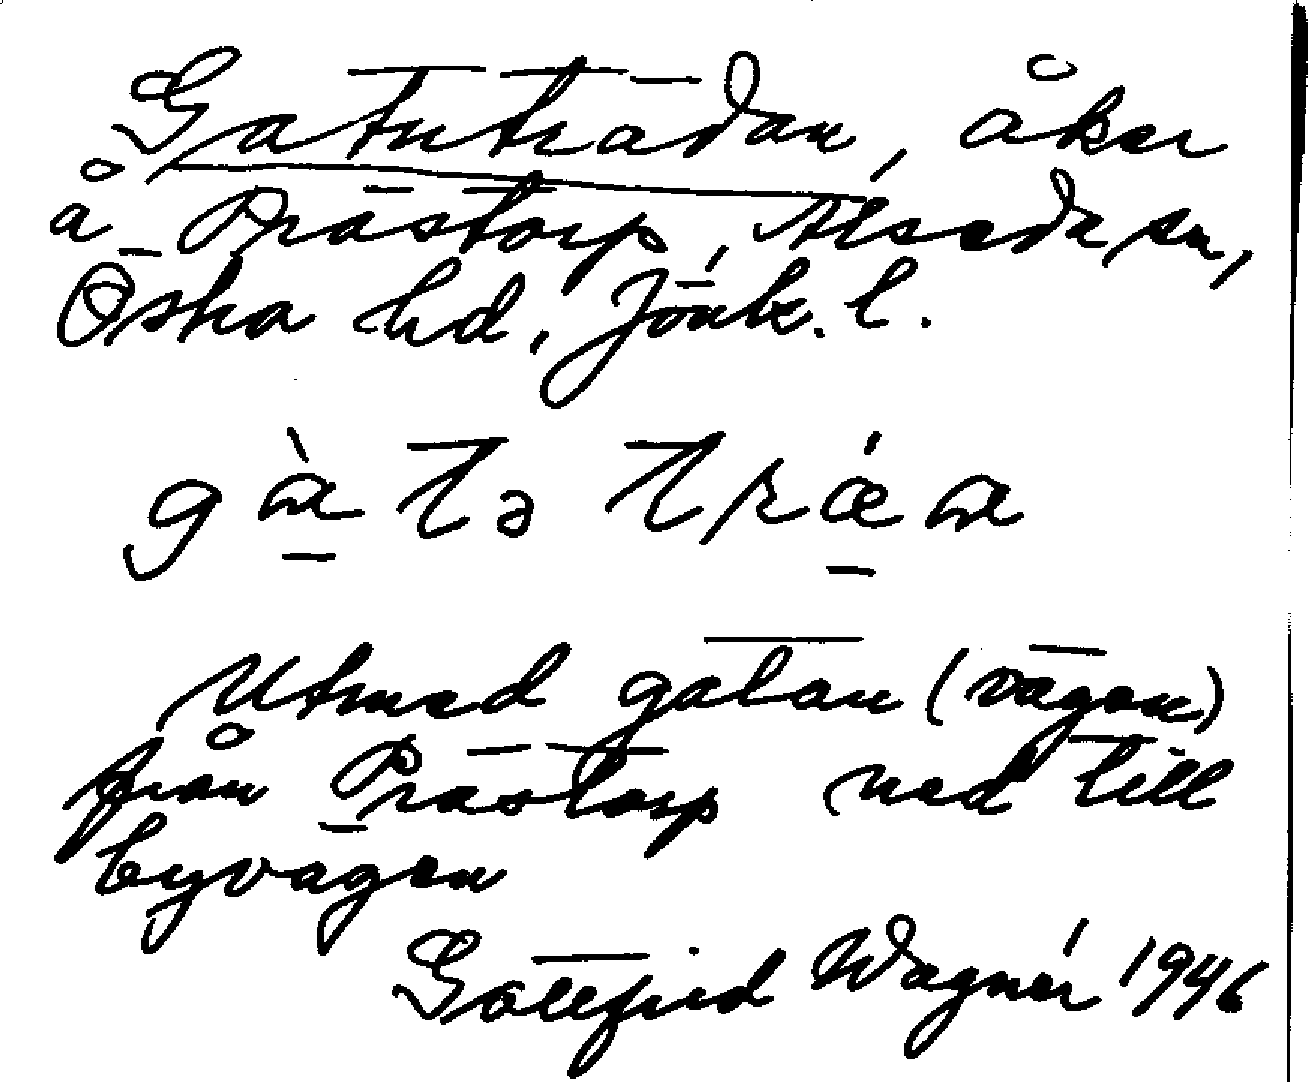 Gatuträdan, åker
å Prästorp, Alseda sn,
Östra hd, Jönk. l.
gàtə trǽa
Utmed gatan (vägen)
från Prästorp ned till
byvägen
Gottfrid Wagnér 1946